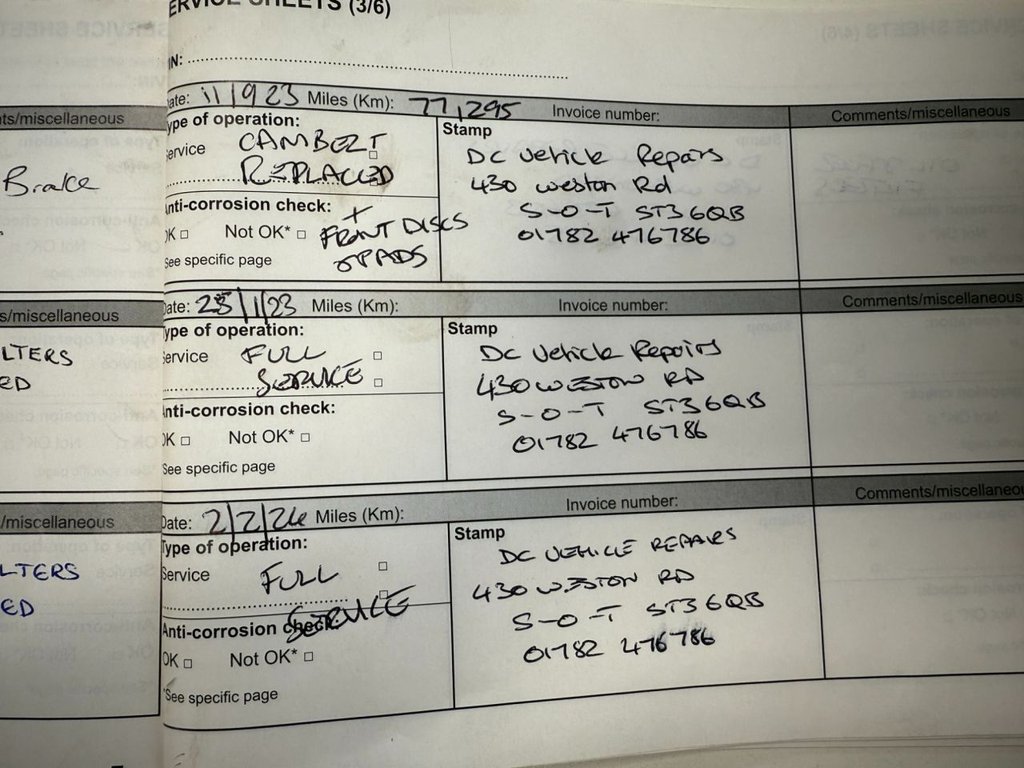 SERVICE SHEETS (3/6)
Date: 11/9 23 Miles (Km): 77,295 Invoice number: Comments/miscellaneous
Type of operation:
Service CAMBELT
REPLACED
Anti-corrosion check: +
OK Not OK* FRONT DISCS
& PADS
See specific page
Stamp
DC Vehicle Repairs
430 Weston Rd
S-O-T ST3 6QB
01782 476786
Date: 25/1/23 Miles (Km): Invoice number: Comments/miscellaneous
Type of operation:
Service FULL
SERVICE
Anti-corrosion check:
OK Not OK*
See specific page
Stamp
DC Vehicle Repairs
430 WESTON RD
S-O-T ST3 6QB
01782 476786
Date: 2/2/24 Miles (Km): Invoice number: Comments/miscellaneous
Type of operation:
Service FULL
SERVICE
Anti-corrosion check:
OK Not OK*
*See specific page
Stamp
DC VEHICLE REPAIRS
430 WESTON RD
S-O-T ST3 6QB
01782 476786
ts/miscellaneous
Brake
s/miscellaneous
LTERS
ED
/miscellaneous
LTERS
ED